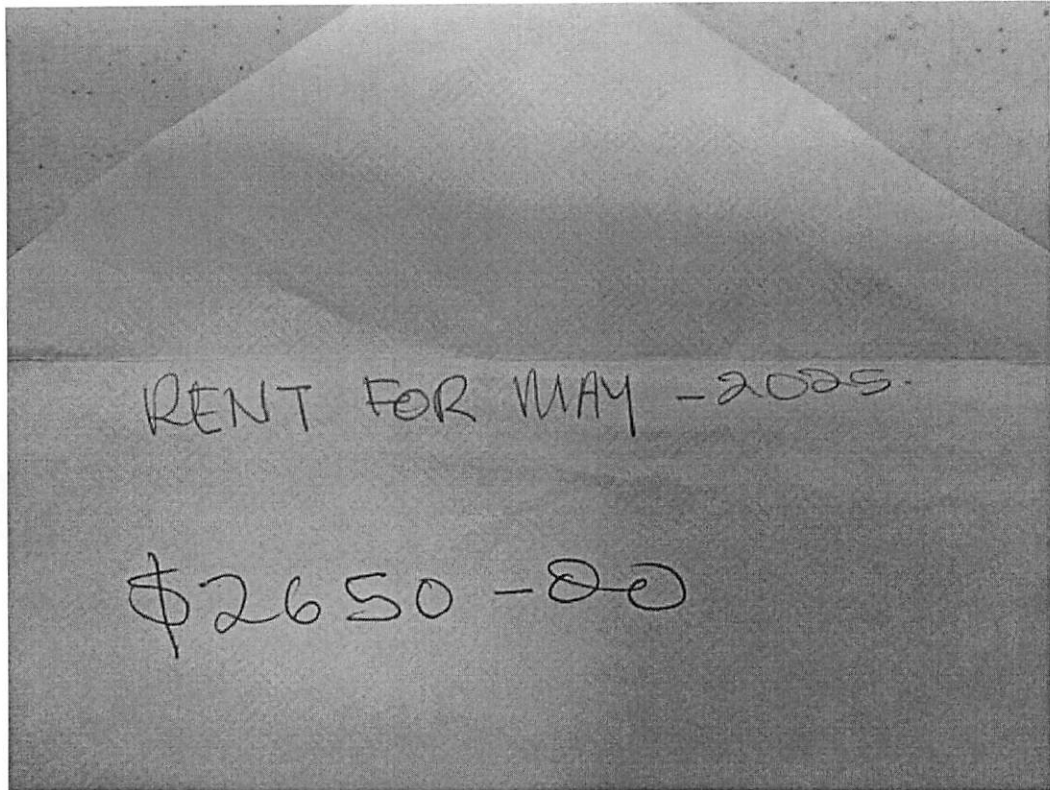 RENT FOR MAY - 2025.
$2650-00